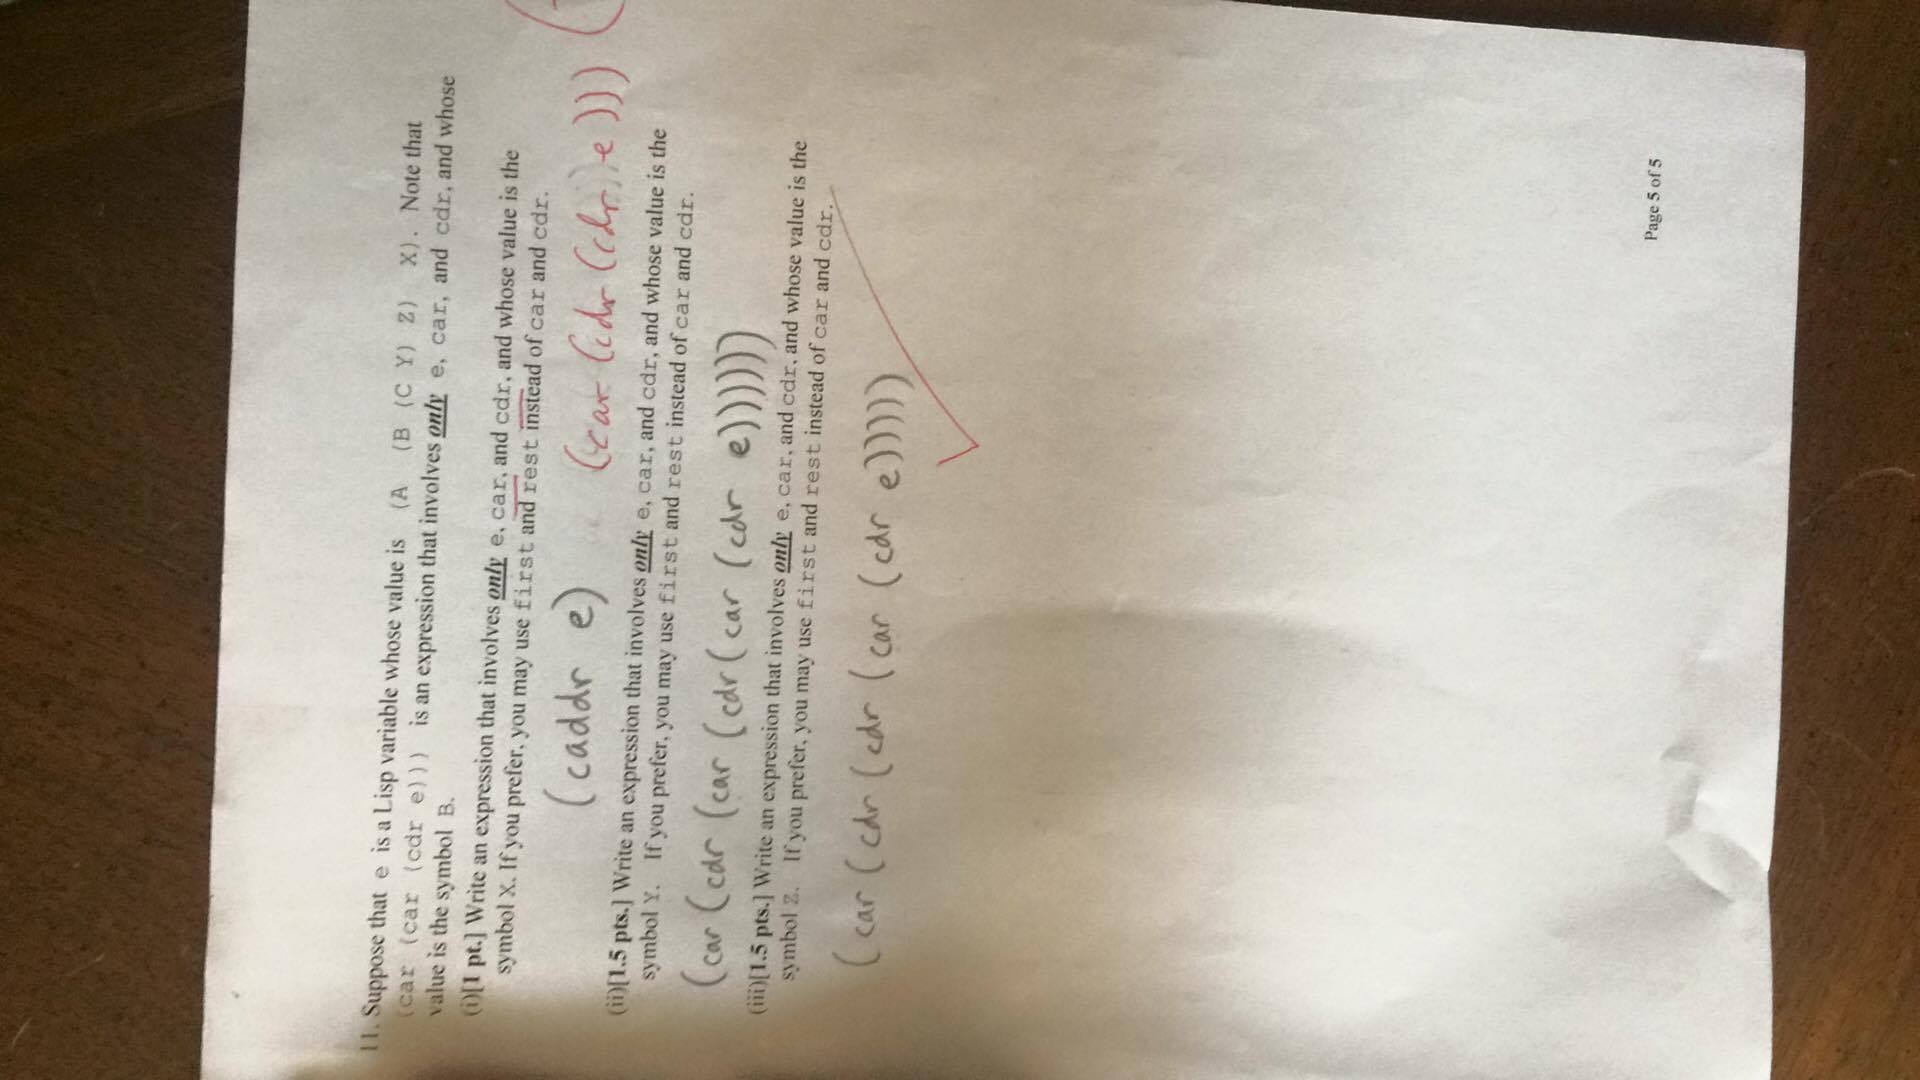 11. Suppose that e is a Lisp variable whose value is (A (B (C Y) Z) X). Note that
(car (car (cdr e))) is an expression that involves only e, car, and cdr, and whose
value is the symbol B.
(i)[1 pt.] Write an expression that involves only e, car, and cdr, and whose value is the
symbol X. If you prefer, you may use first and rest instead of car and cdr.
(caddr e) (car (cdr (cdr e)))
(ii)[1.5 pts.] Write an expression that involves only e, car, and cdr, and whose value is the
symbol Y. If you prefer, you may use first and rest instead of car and cdr.
(car (cdr (car (cdr (car (cdr e))))))
(iii)[1.5 pts.] Write an expression that involves only e, car, and cdr, and whose value is the
symbol Z. If you prefer, you may use first and rest instead of car and cdr.
(car (cdr (cdr (car (cdr e)))))
Page 5 of 5